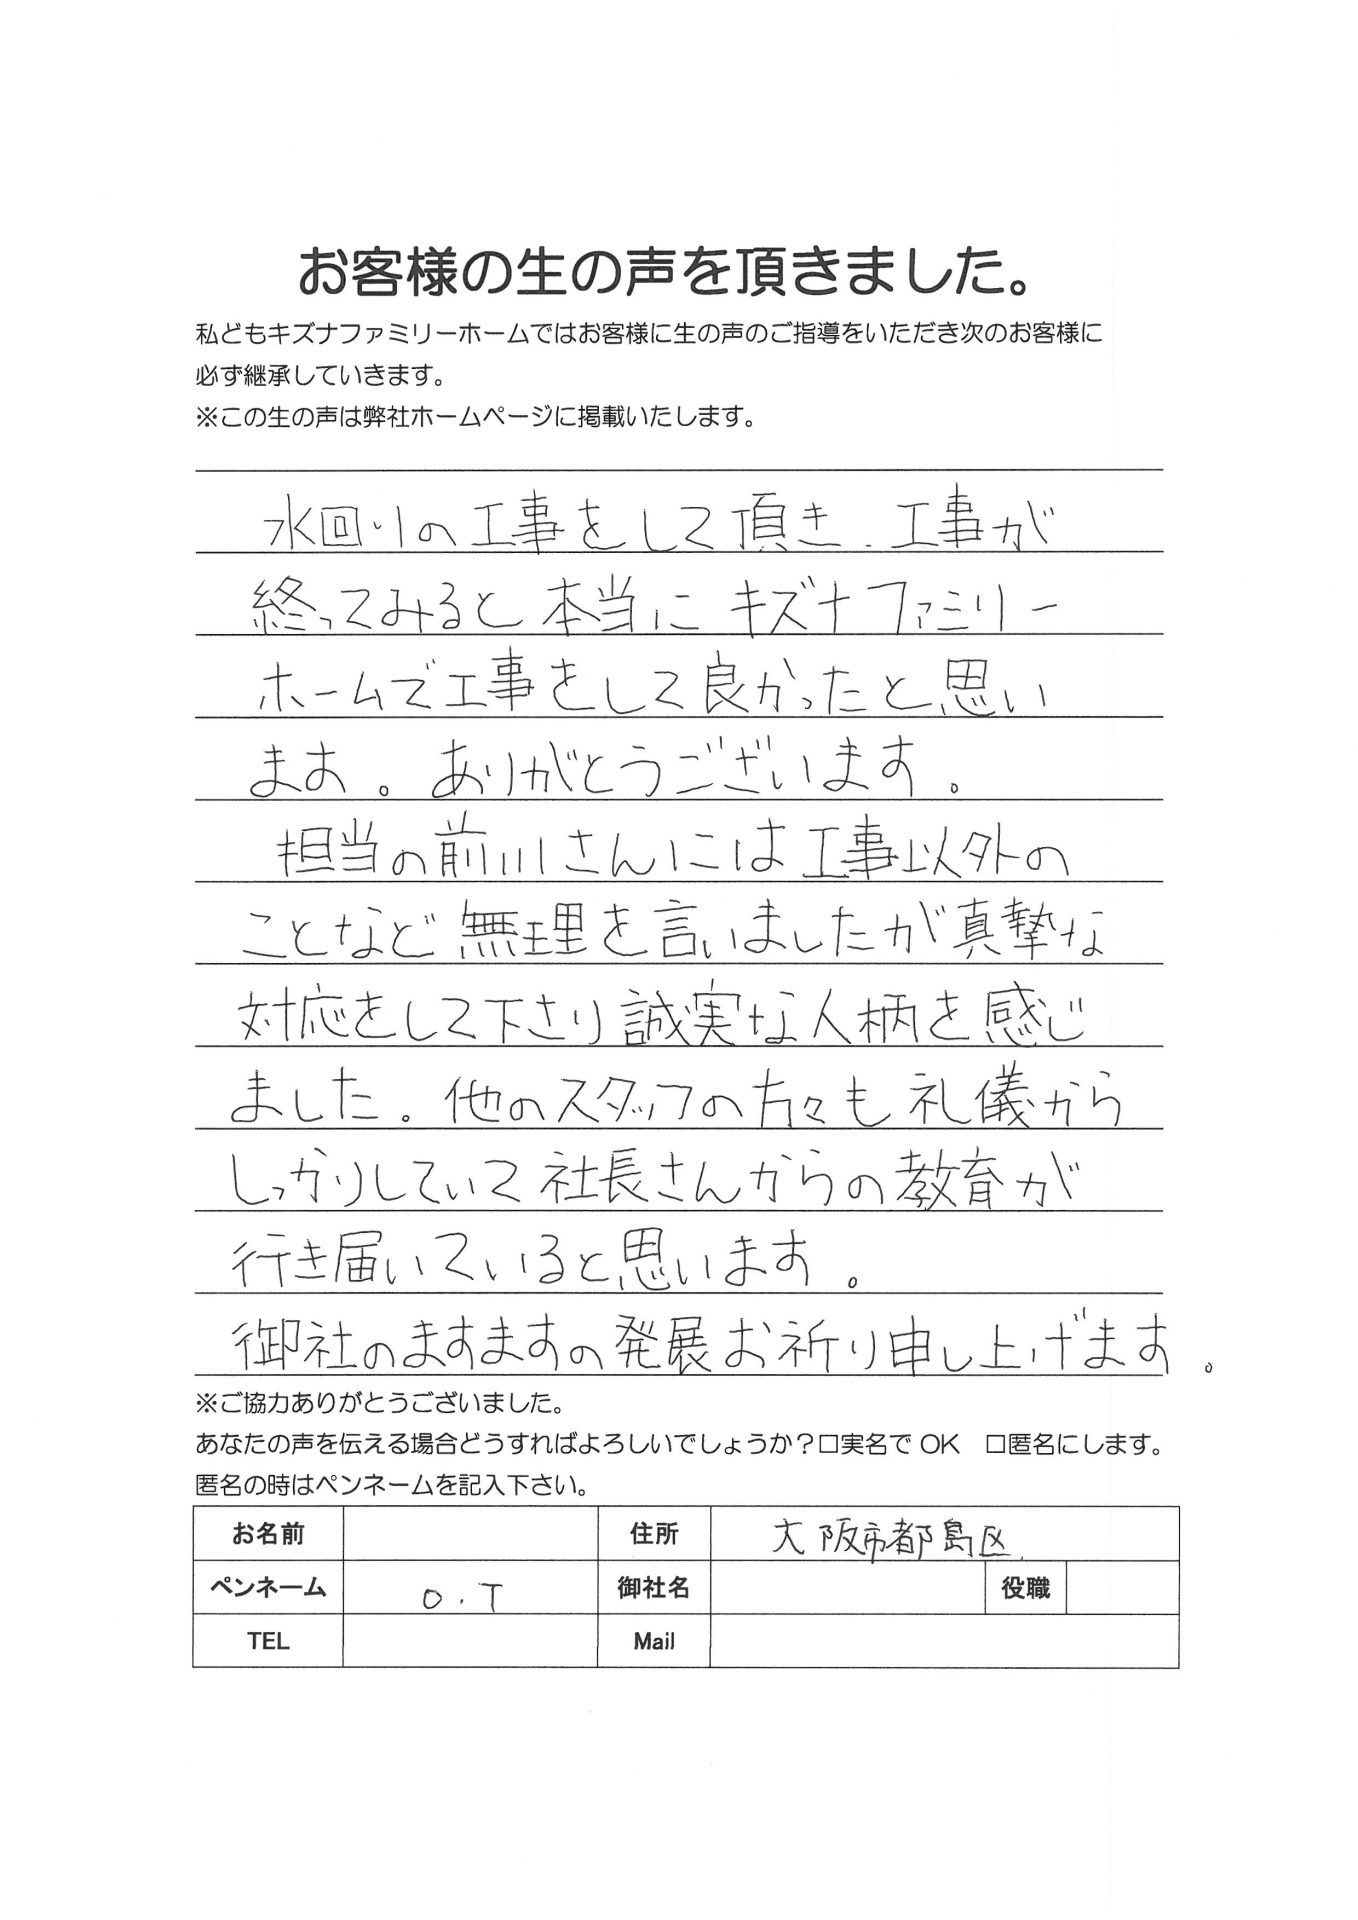 お客様の生の声を頂きました。
私どもキズナファミリーホームではお客様に生の声のご指導をいただき次のお客様に
必ず継承していきます。
※この生の声は弊社ホームページに掲載いたします。
水回りの工事をして頂き、工事が
終ってみると本当にキズナファミリー
ホームで工事をして良かったと思い
ます。ありがとうございます。
担当の前川さんには工事以外の
ことなど無理を言いましたが真摯な
対応をして下さり誠実な人柄を感じ
ました。他のスタッフの方々も礼儀から
しっかりしていて社長さんからの教育が
行き届いていると思います。
御社のますますの発展お祈り申し上げます。
※ご協力ありがとうございました。
あなたの声を伝える場合どうすればよろしいでしょうか？□実名でOK　□匿名にします。
匿名の時はペンネームを記入下さい。
お名前 住所 大阪市都島区
ペンネーム O.T 御社名 役職
TEL Mail